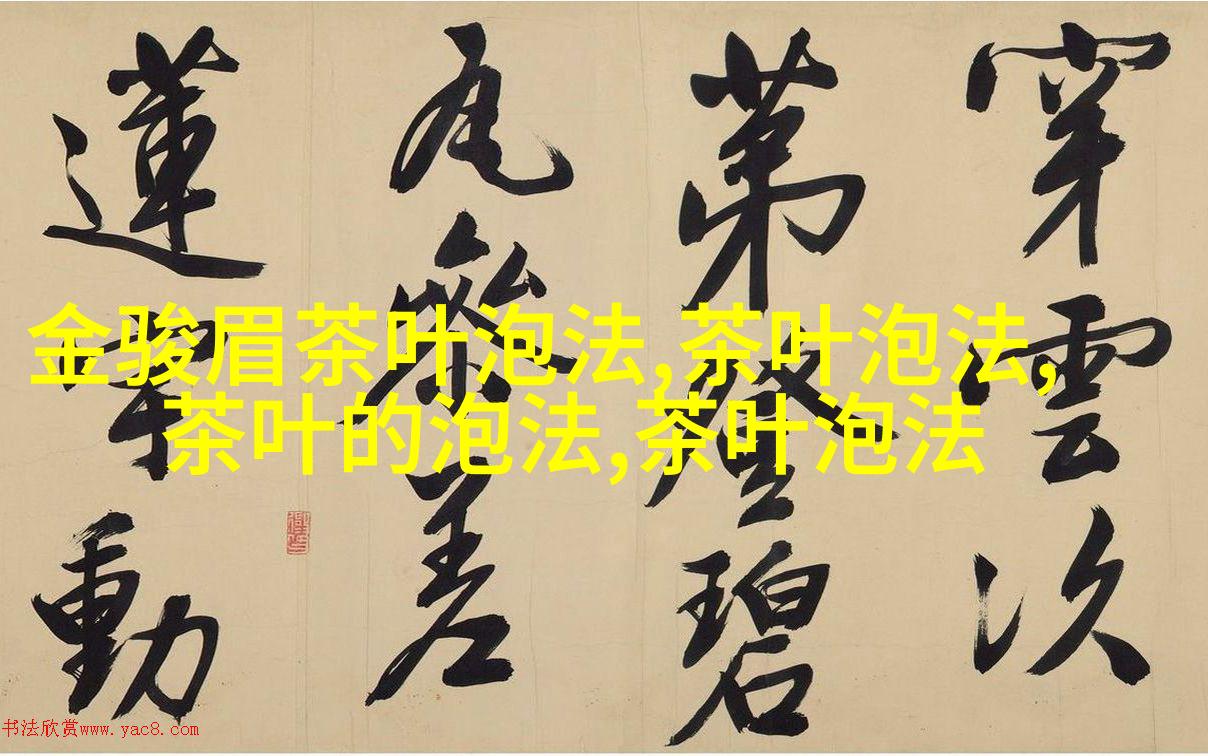 穿雲次
第登碧
瓦參差
蓮動
金骏眉茶叶泡法,茶叶泡法,
茶叶的泡法,茶叶泡法
书法欣赏www.yac8.com